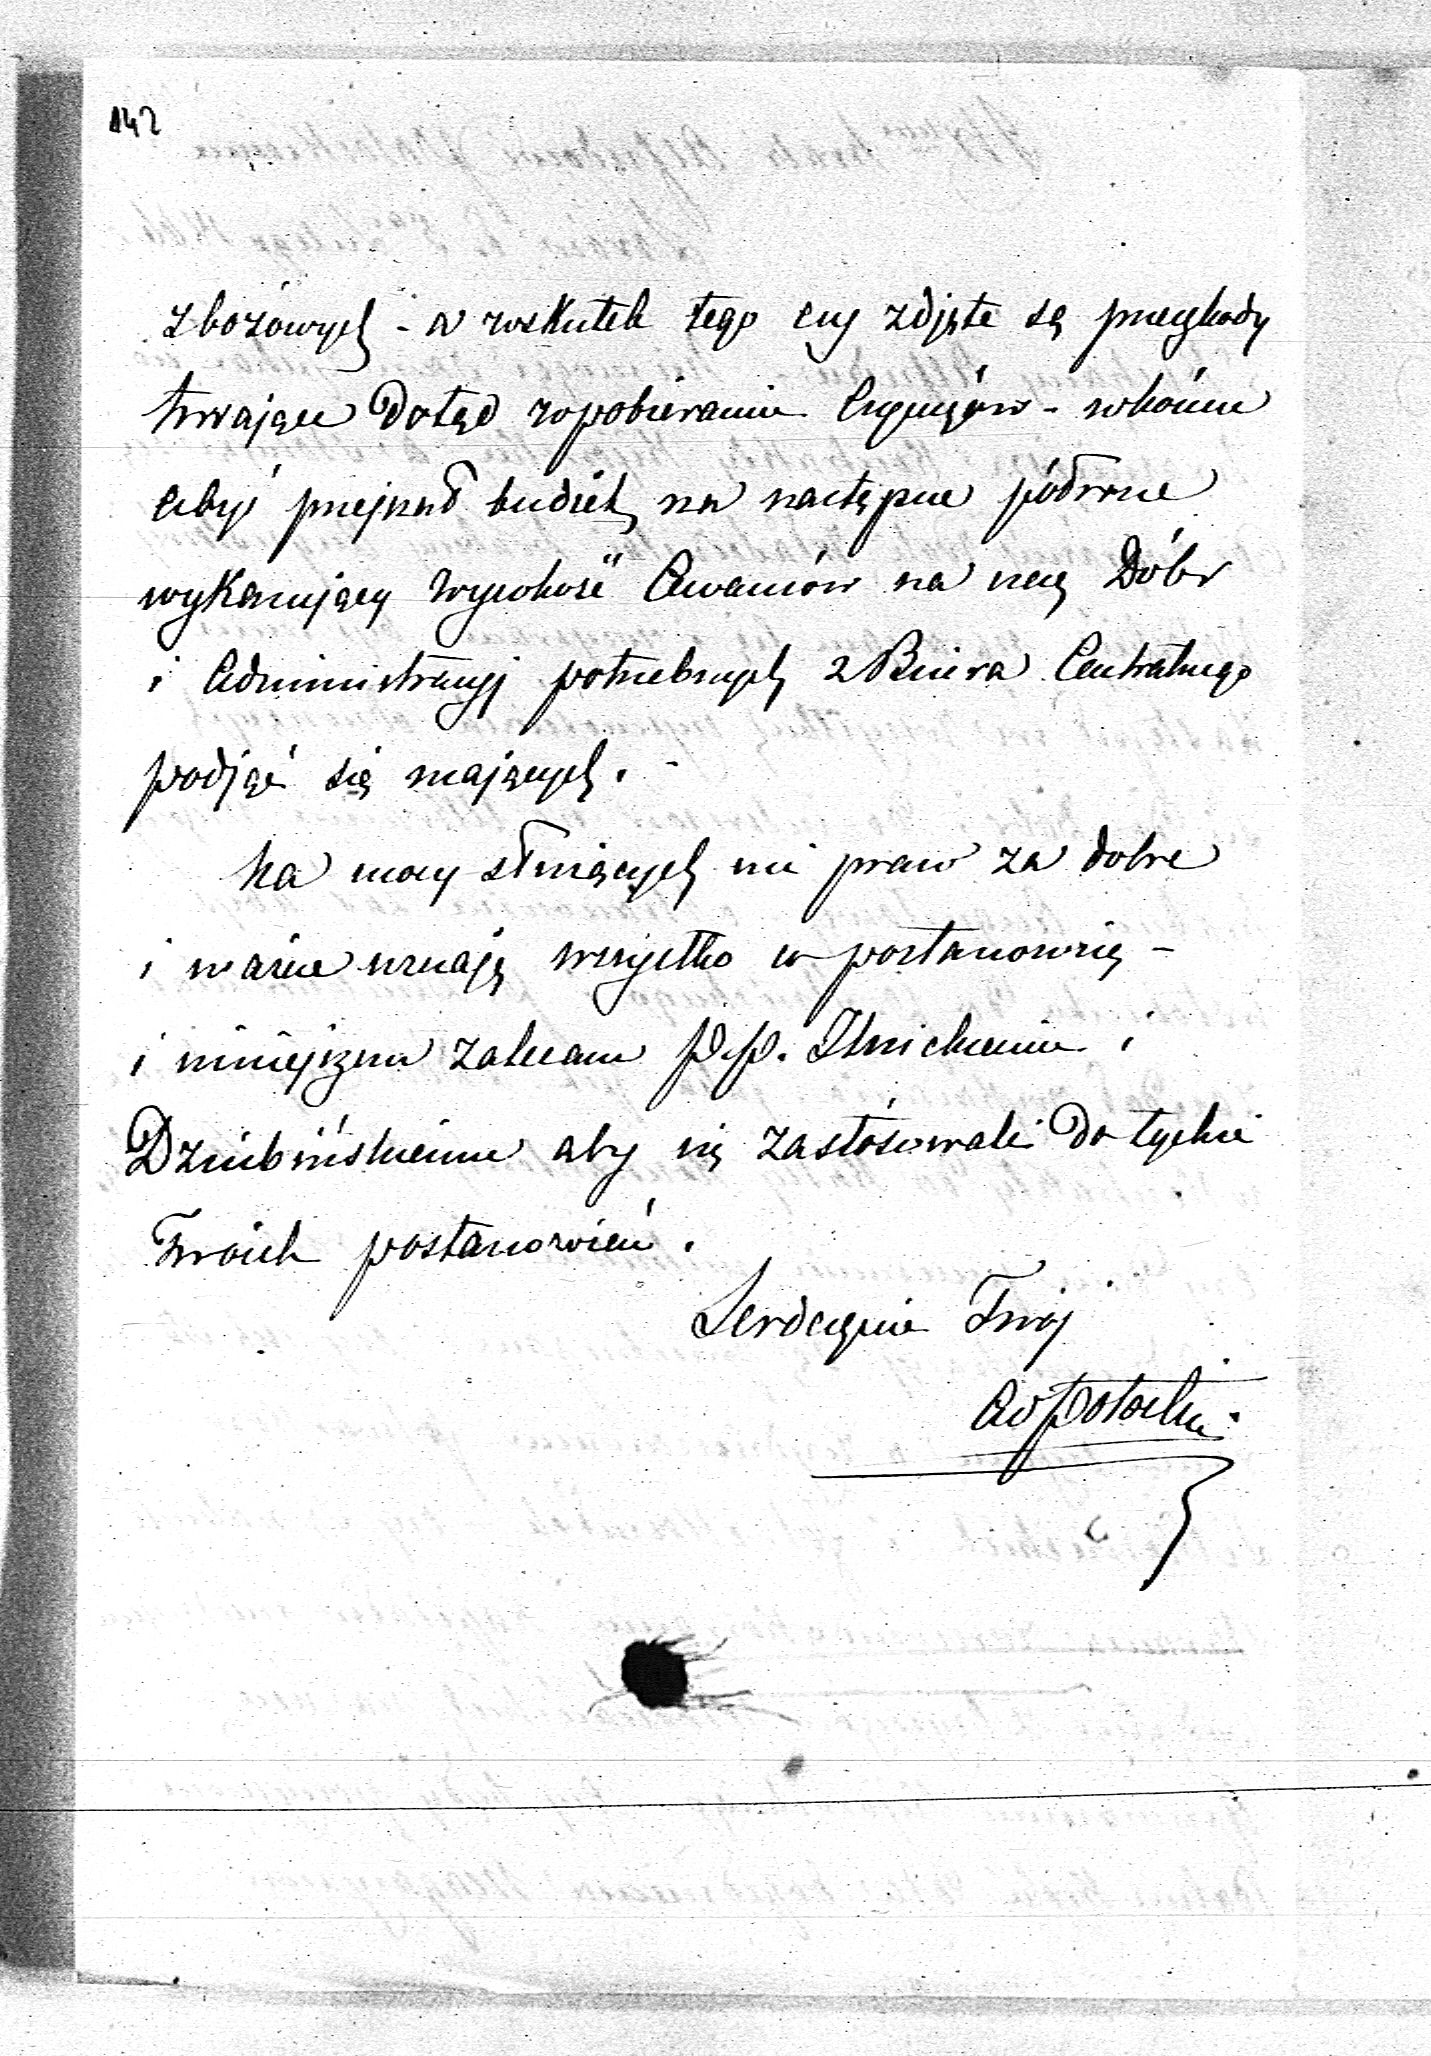 142
zbożowych - a wskutek tego czy zdjęte są przeszkody
trwające dotąd w pobieraniu Czynszów - w końcu
abyś przejrzał budżet na następne półrocze
wykazujący wysokość Avansów na rzecz Dóbr
i Administracyj potrzebnych z Biura Centralnego
podjąć się mających. -
Na mocy służących mi praw za dobre
i ważne uznaję wszystko co postanowisz -
i niniejszem zalecam P.P. Ilnickiemu i
Dziubińskiemu aby się zastósowali do tychże
Twoich postanowień.
Serdecznie Twój
AdPotocki.